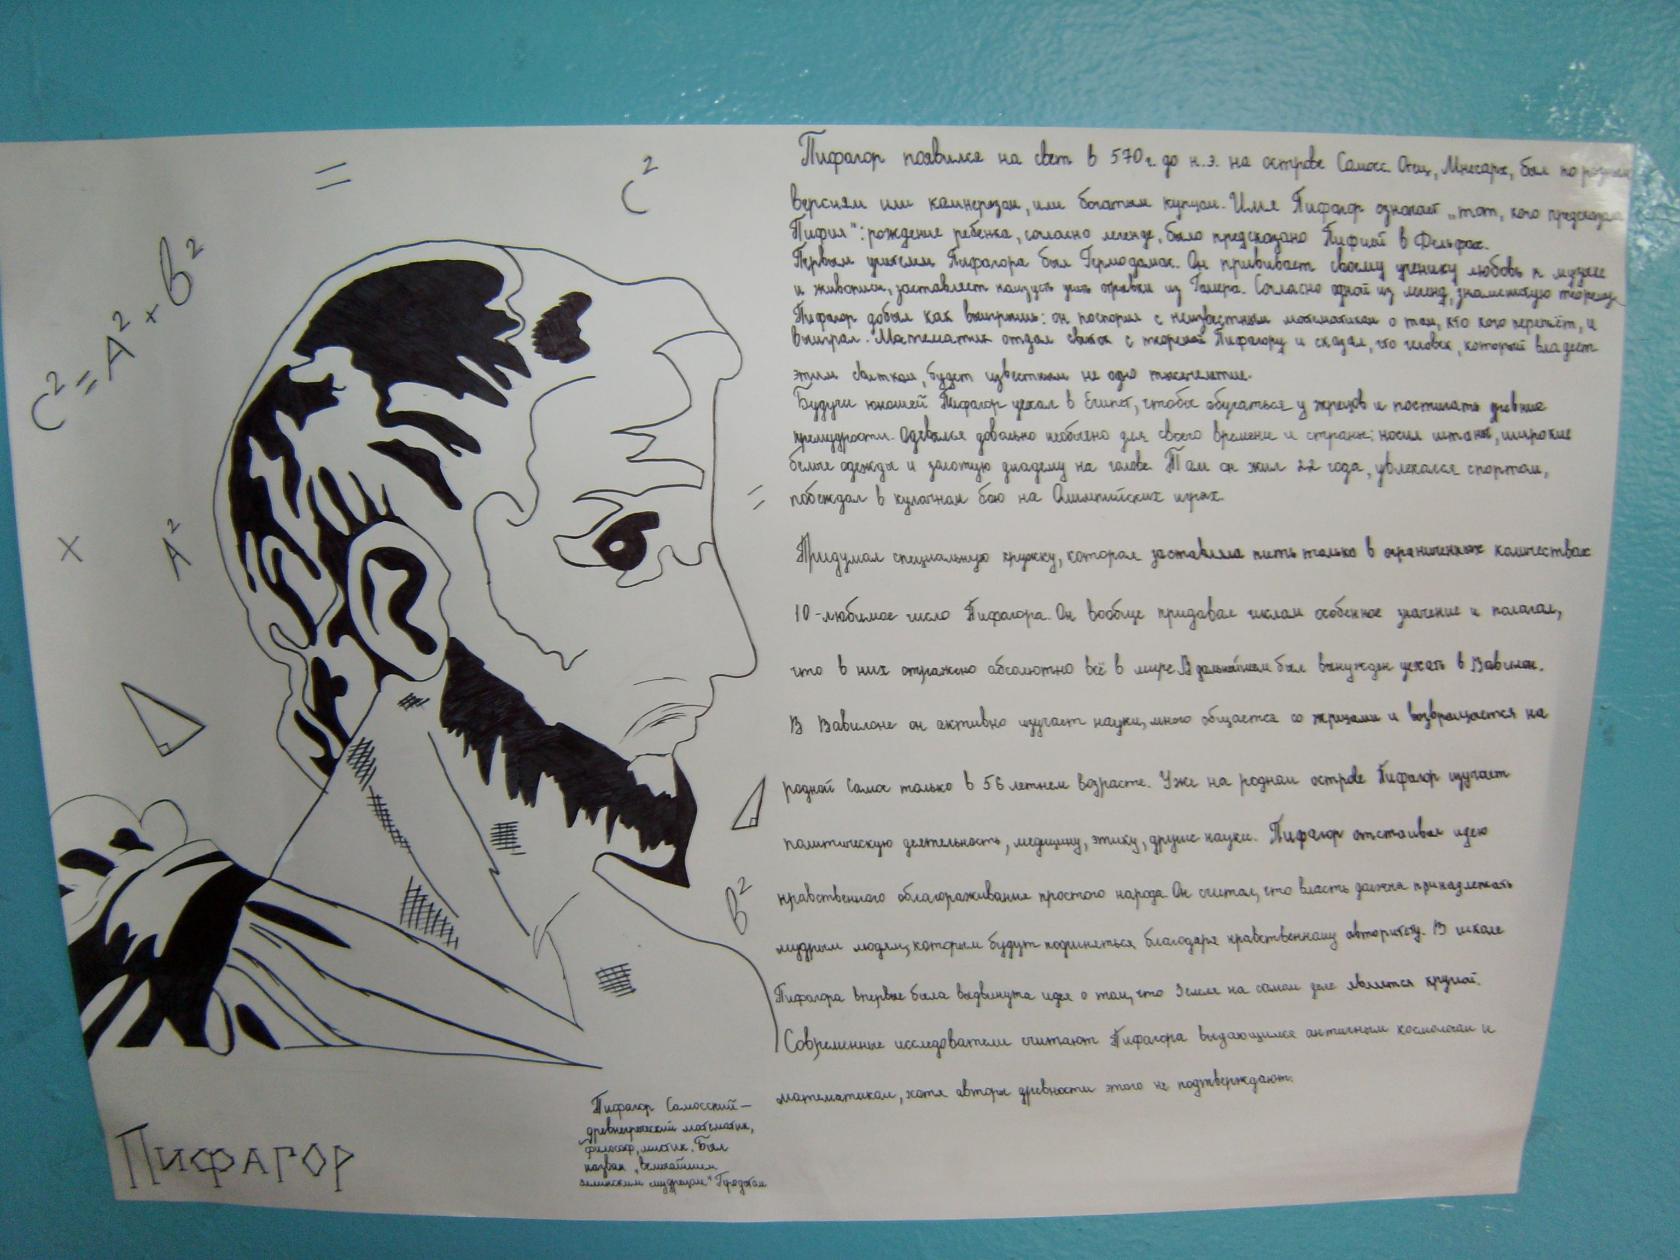 =
C²
C² = A² × B²
×
A²
=
B²
Пифагор появился на свет в 570 г. до н.э. на острове Самосс. Отец, Мнесарх, был по разным
версиям или камнерезом, или богатым купцом. Имя Пифагор означает „тот, кого предсказала
Пифия": рождение ребёнка, согласно легенде, было предсказано Пифией в Дельфах.
Первым учителем Пифагора был Гермодамас. Он прививает своему ученику любовь к музыке
и живописи, заставляет наизусть учить отрывки из Гомера. Согласно одной из легенд, знаменитую теорему
Пифагор добыл как выигрыш: он поспорил с неизвестным математиком о том, кто кого перепьёт, и
выиграл. Математик отдал свиток с теоремой Пифагору и сказал, что человек, который владеет
этим свитком, будет известным не одно тысячелетие.
Будучи юношей Пифагор уехал в Египет, чтобы обучаться у жрецов и постигать древние
премудрости. Одевался довольно необычно для своего времени и страны: носил штаны, широкие
белые одежды и золотую диадему на голове. Там он жил 22 года, увлекался спортом,
побеждал в кулачном бою на Олимпийских играх.
Придумал специальную кружку, которая заставляла пить только в ограниченных количествах
10 - любимое число Пифагора. Он вообще придавал числам особенное значение и полагал,
что в них отражено абсолютно всё в мире. В дальнейшем был вынужден уехать в Вавилон.
В Вавилоне он активно изучает науки, много общается со жрецами и возвращается на
родной Самос только в 56 летнем возрасте. Уже на родном острове Пифагор изучает
политическую деятельность, медицину, этику, другие науки. Пифагор отстаивал идею
нравственного облагораживания простого народа. Он считал, что власть должна принадлежать
мудрым людям, которым будут подчиняться благодаря нравственному авторитету. В школе
Пифагора впервые была выдвинута идея о том, что Земля на самом деле является круглой.
Современные исследователи считают Пифагора выдающимся античным космологом и
математиком, хотя авторы древности этого не подтверждают.
Пифагор Самосский —
древнегреческий математик,
философ, мистик. Был
назван „величайшим
эллинским мудрецом" Геродотом
Пифагор